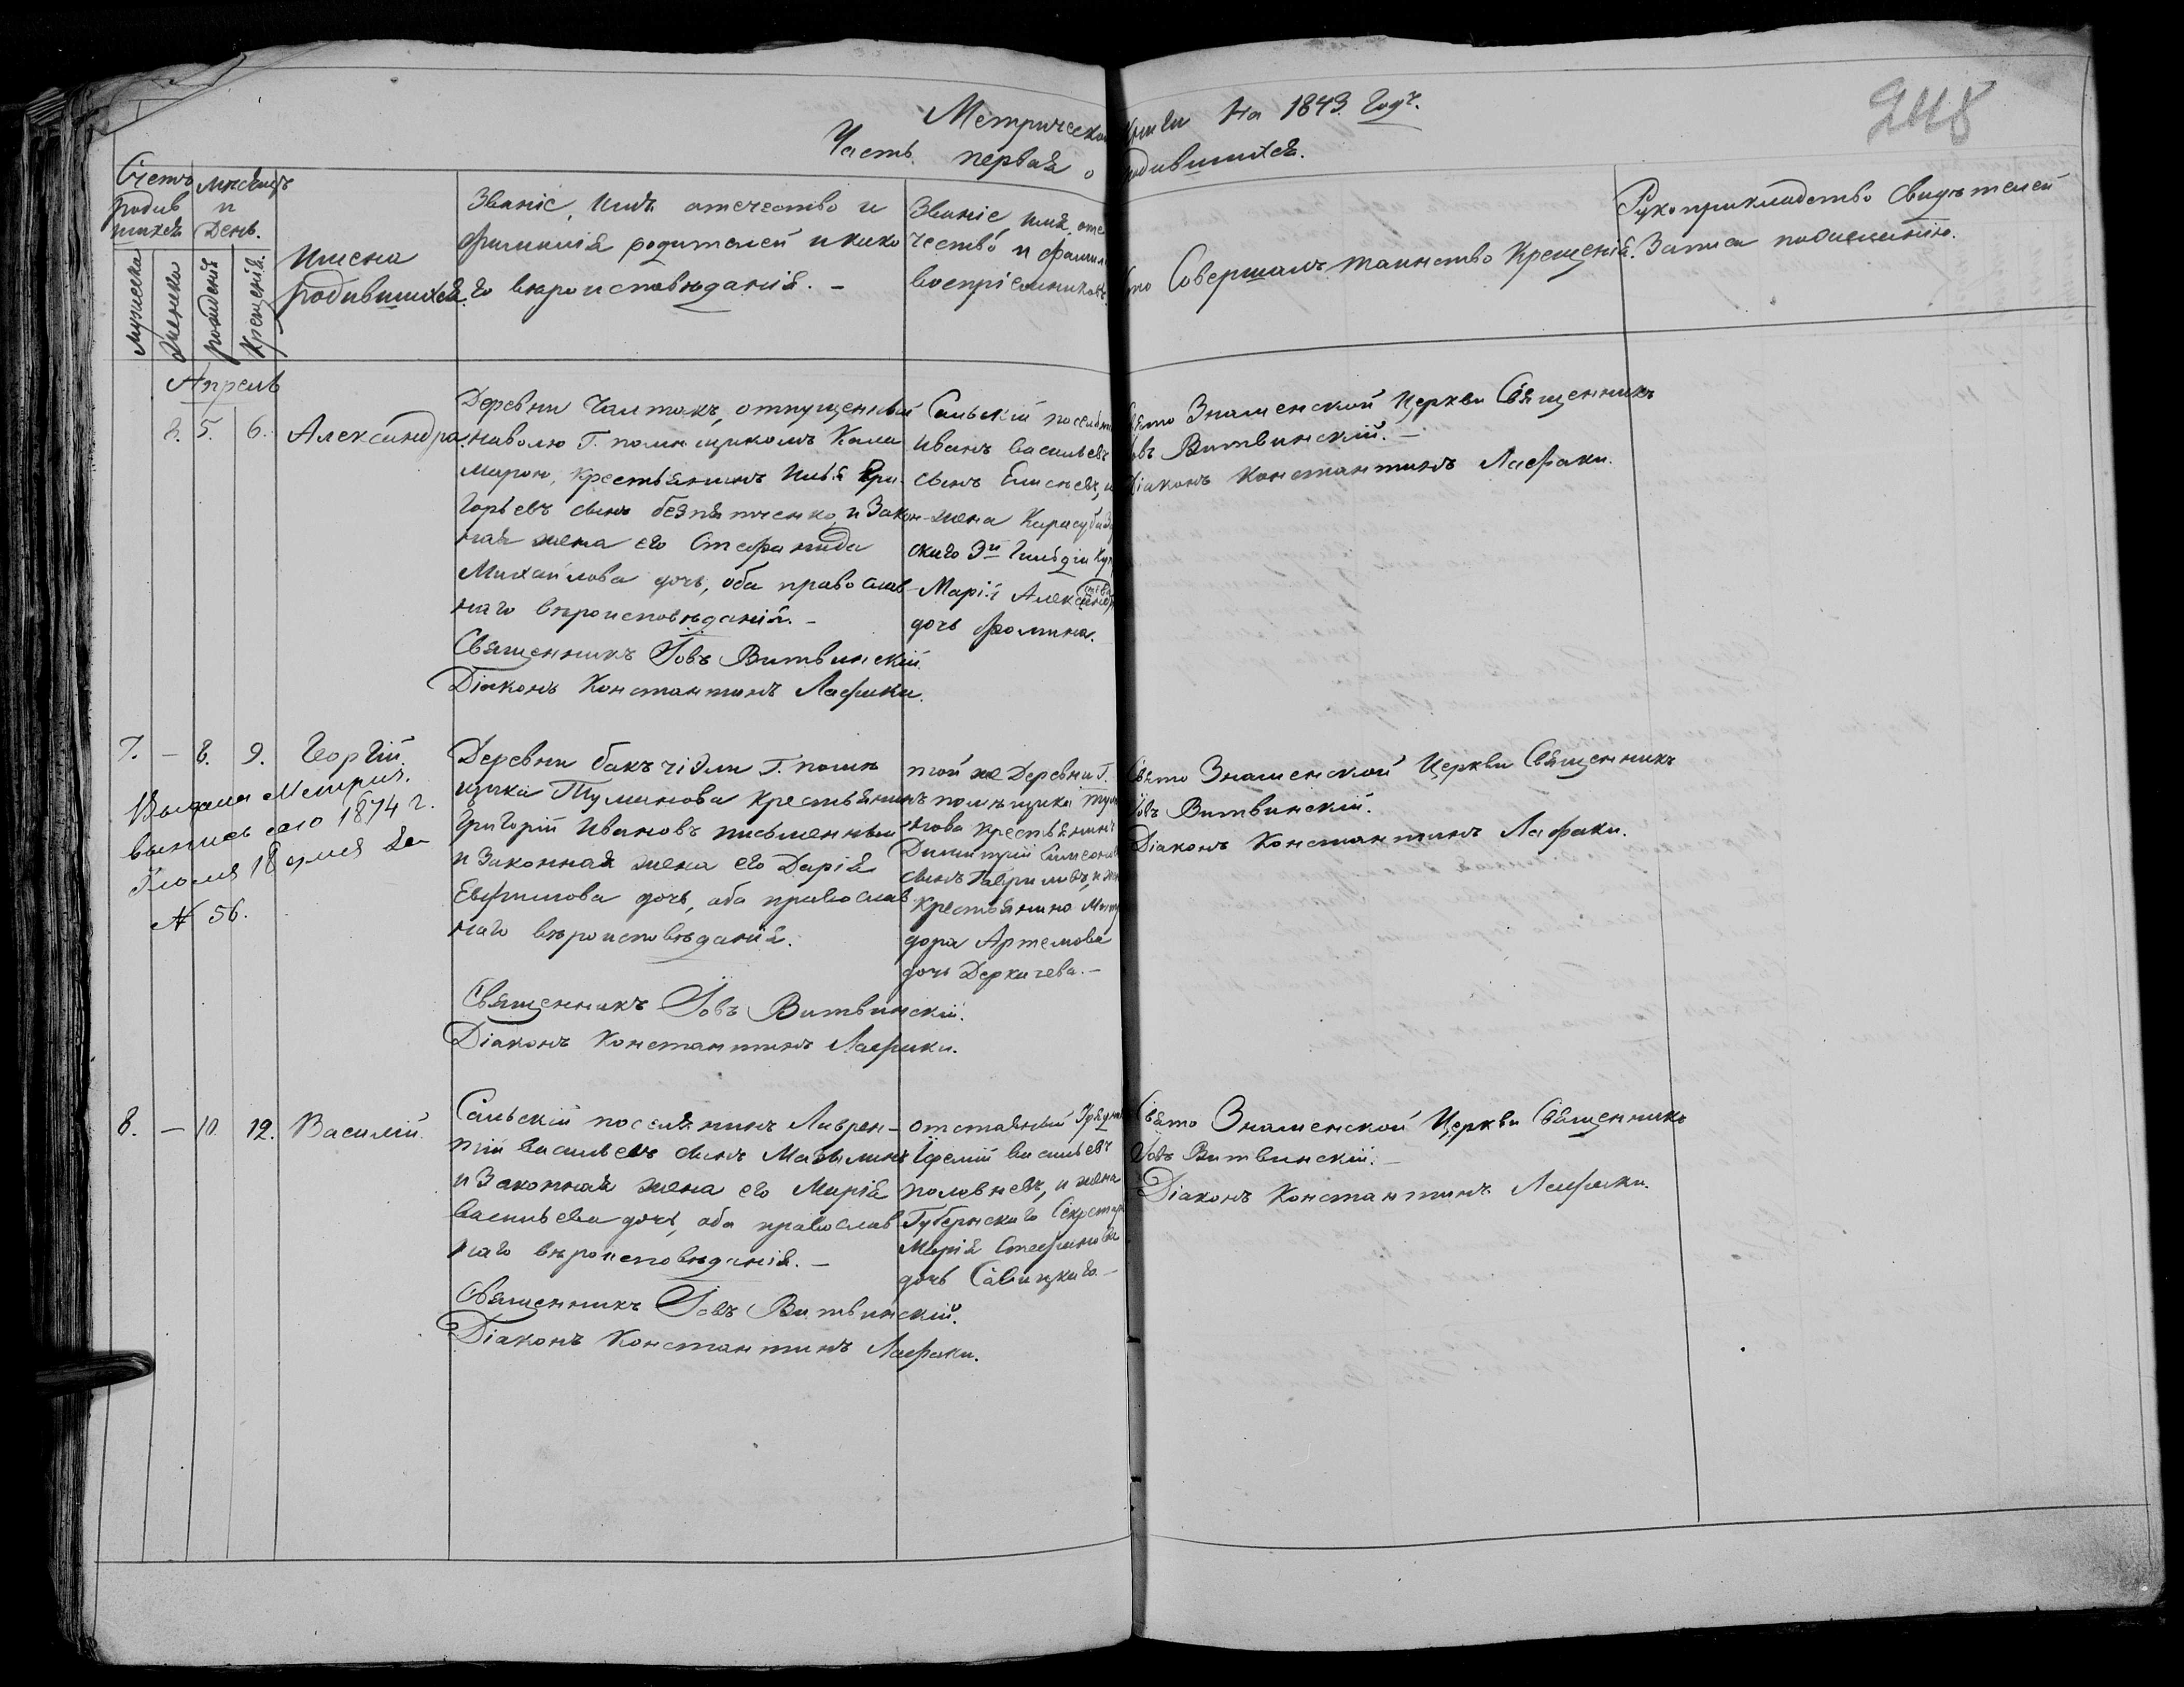 248
Метрической книги На 1843. Годъ.
Часть первая о родившихся.
Счетъ родившихся
Мужеска
Женска
Мѣсяцъ и День.
рожденія
Крещенія.
Имена родившихся.
Званіе, имя отечество и
фамилія родителей и како
го вѣроисповѣданія. -
Званіе имя, оте
чество и фамил
воспріемниковъ
Кто Совершалъ таинство Крещенія.
Рукоприкладство Свидѣтелей
Записи по желанію.
Апрель
2. 5. 6. Александра
Деревни Чалтакъ, отпущенный
наволю Г. помѣщикомъ Кала
марою, крестьянинъ Илья Гри-
горьевъ сынъ безпятченко, и Закон
ная жена его Стефанида
Михайлова дочь, оба православ
наго вѣроисповѣданія. -
Священникъ Іовъ Витвинскій
Діаконъ Константинъ Лафаки.
Сельскій поселян
Иванъ Васильевъ
сынъ Елисѣевъ, и
жена Карасубаз
скаго 3й Гильдіи Куп
Марія Александр
дочь Фомина.
Свято Знаменской Церкви Священникъ
Іовъ Витвинскій. -
Діаконъ Константинъ Лафаки.
7. - 8. 9. Георгій.
Выдана Метрич.
выпись сего 1874 г.
Іюля 18 дня за
№ 56.
Деревни бакъ чіэли Г. помѣ
щика Туманова крестьянинъ
Григорій Ивановъ письменный
и Законная жена его Дарія
Евфимова дочь, оба православ
наго вѣроисповѣданія.
Священникъ Іовъ Витвинскій.
Діаконъ Константинъ Лафаки.
той же Деревни Г.
помѣщика Тума
нова крестьянинъ
Димитрій Симеонов
сынъ Гавриловъ, и
крестьянина
дора Артемова
дочь Деркачева. -
Свято Знаменской Церкви Священникъ
Іовъ Витвинскій.
Діаконъ Константинъ Лафаки.
8. - 10. 12. Василій.
Сельскій поселянинъ Лаврен-
тій Васильевъ сынъ
и Законная жена его Марія
Васильева дочь, оба православ
наго вѣроисповѣданія. -
Священникъ Іовъ Витвинскій.
Діаконъ Константинъ Лафаки.
отставный Уряд
Васильевъ
и жена
Губернскаго Секретар
Марія Стефанова
дочь Савицкаго -
Свято Знаменской Церкви Священникъ
Іовъ Витвинскій. -
Діаконъ Константинъ Лафаки.